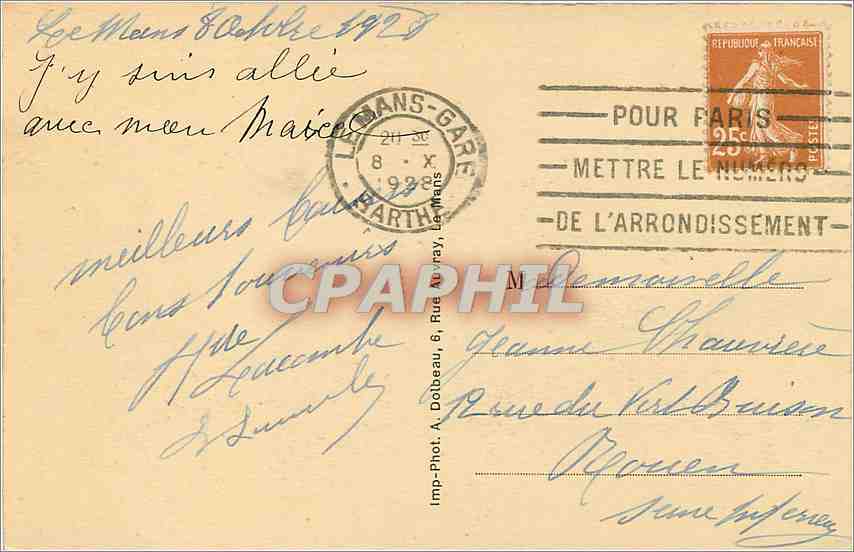 Le Mans 8 Octobre 1928
J'y suis allée
avec mon
meilleurs baisers
bons souvenirs
Lacombe
LE MANS-GARE
20 30
8 · X
1928
SARTHE
REPUBLIQUE FRANÇAISE
25c
POSTES
POUR PARIS
METTRE LE NUMERO
DE L'ARRONDISSEMENT
Mademoiselle
Jeanne Chauvière
12 rue du Vert Buison
Rouen
Seine Inferieu
Imp-Phot. A. Dolbeau, 6, Rue Auvray, Le Mans
CPAPHIL